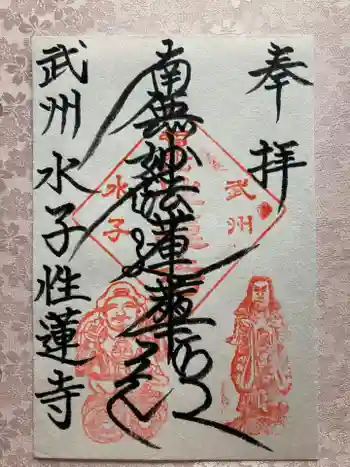 奉拝
南無妙法蓮華経
武州
水子
武州 水子性蓮寺